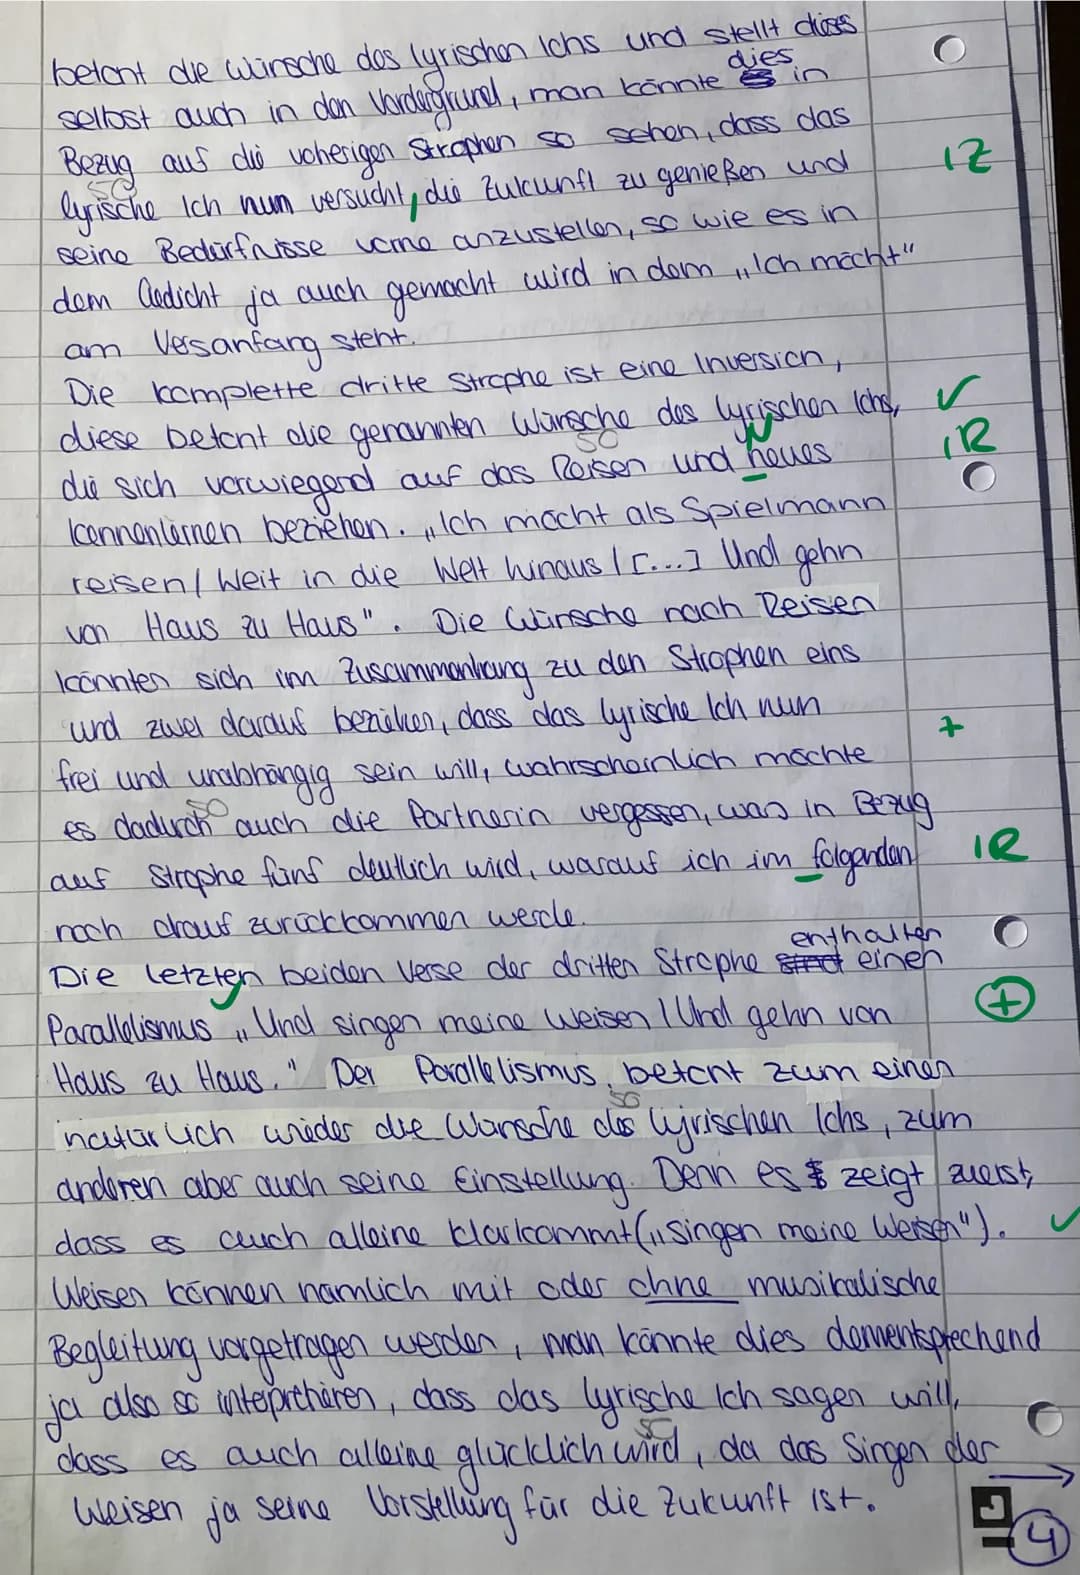 betont die Wünsche des lyrischen Ichs und stellt dieses
selbst auch in den Vordergrund, man könnte dies in
Bezug auf die voherigen Strophen so sehen, dass das
lyrische Ich nun versucht, die Zukunft zu genießen und
1Z
seine Bedürfnisse vorne anzustellen, so wie es in
dem Gedicht ja auch gemacht wird in dem „Ich möcht"
am Versanfang steht.
Die komplette dritte Strophe ist eine Inversion,
diese betont die genannten Wünsche des lyrischen Ichs,
die sich vorwiegend auf das Reisen und neues
N
1R
50
kennenlernen beziehen. „Ich möcht als Spielmann
reisen/ Weit in die Welt hinaus / [...] Und gehn
von Haus zu Haus". Die Wünsche nach Reisen
könnten sich im Zusammenhang zu den Strophen eins
und zwei darauf beziehen, dass das lyrische Ich nun
+
frei und unabhängig sein will, wahrscheinlich möchte
es dadurch auch die Partnerin vergessen, was in Bezug
auf Strophe fünf deutlich wird, worauf ich im folgenden
1R
noch drauf zurückkommen werde.
Die letzten beiden Verse der dritten Strophe enthalten einen
Parallelismus „Und singen meine Weisen / Und gehn von
+
Haus zu Haus." Der Parallelismus, betont zum einen
natürlich wieder die Wünsche des lyrischen Ichs, zum
anderen aber auch seine Einstellung. Denn es zeigt zuerst,
dass es auch alleine klarkommt („singen meine Weisen").
Weisen können nämlich mit oder ohne musikalische
Begleitung vorgetragen werden, man könnte dies dementsprechend
ja also so intepretheren, dass das lyrische Ich sagen will,
dass es auch alleine glücklich wird, da das Singen der
Weisen ja seine Vorstellung für die Zukunft ist.
4